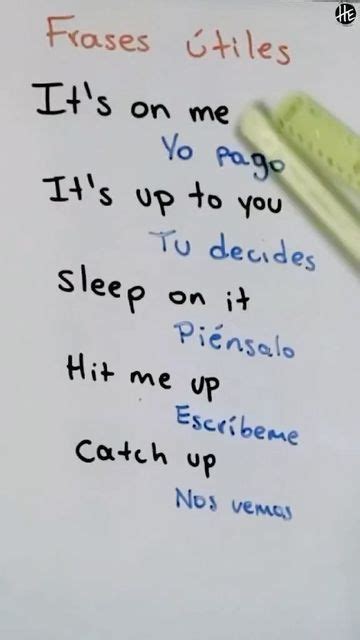 HE
Frases útiles
It's on me
Yo pago
It's up to you
Tu decides
sleep on it
Piénsalo
Hit me up
Escríbeme
Catch up
Nos vemos